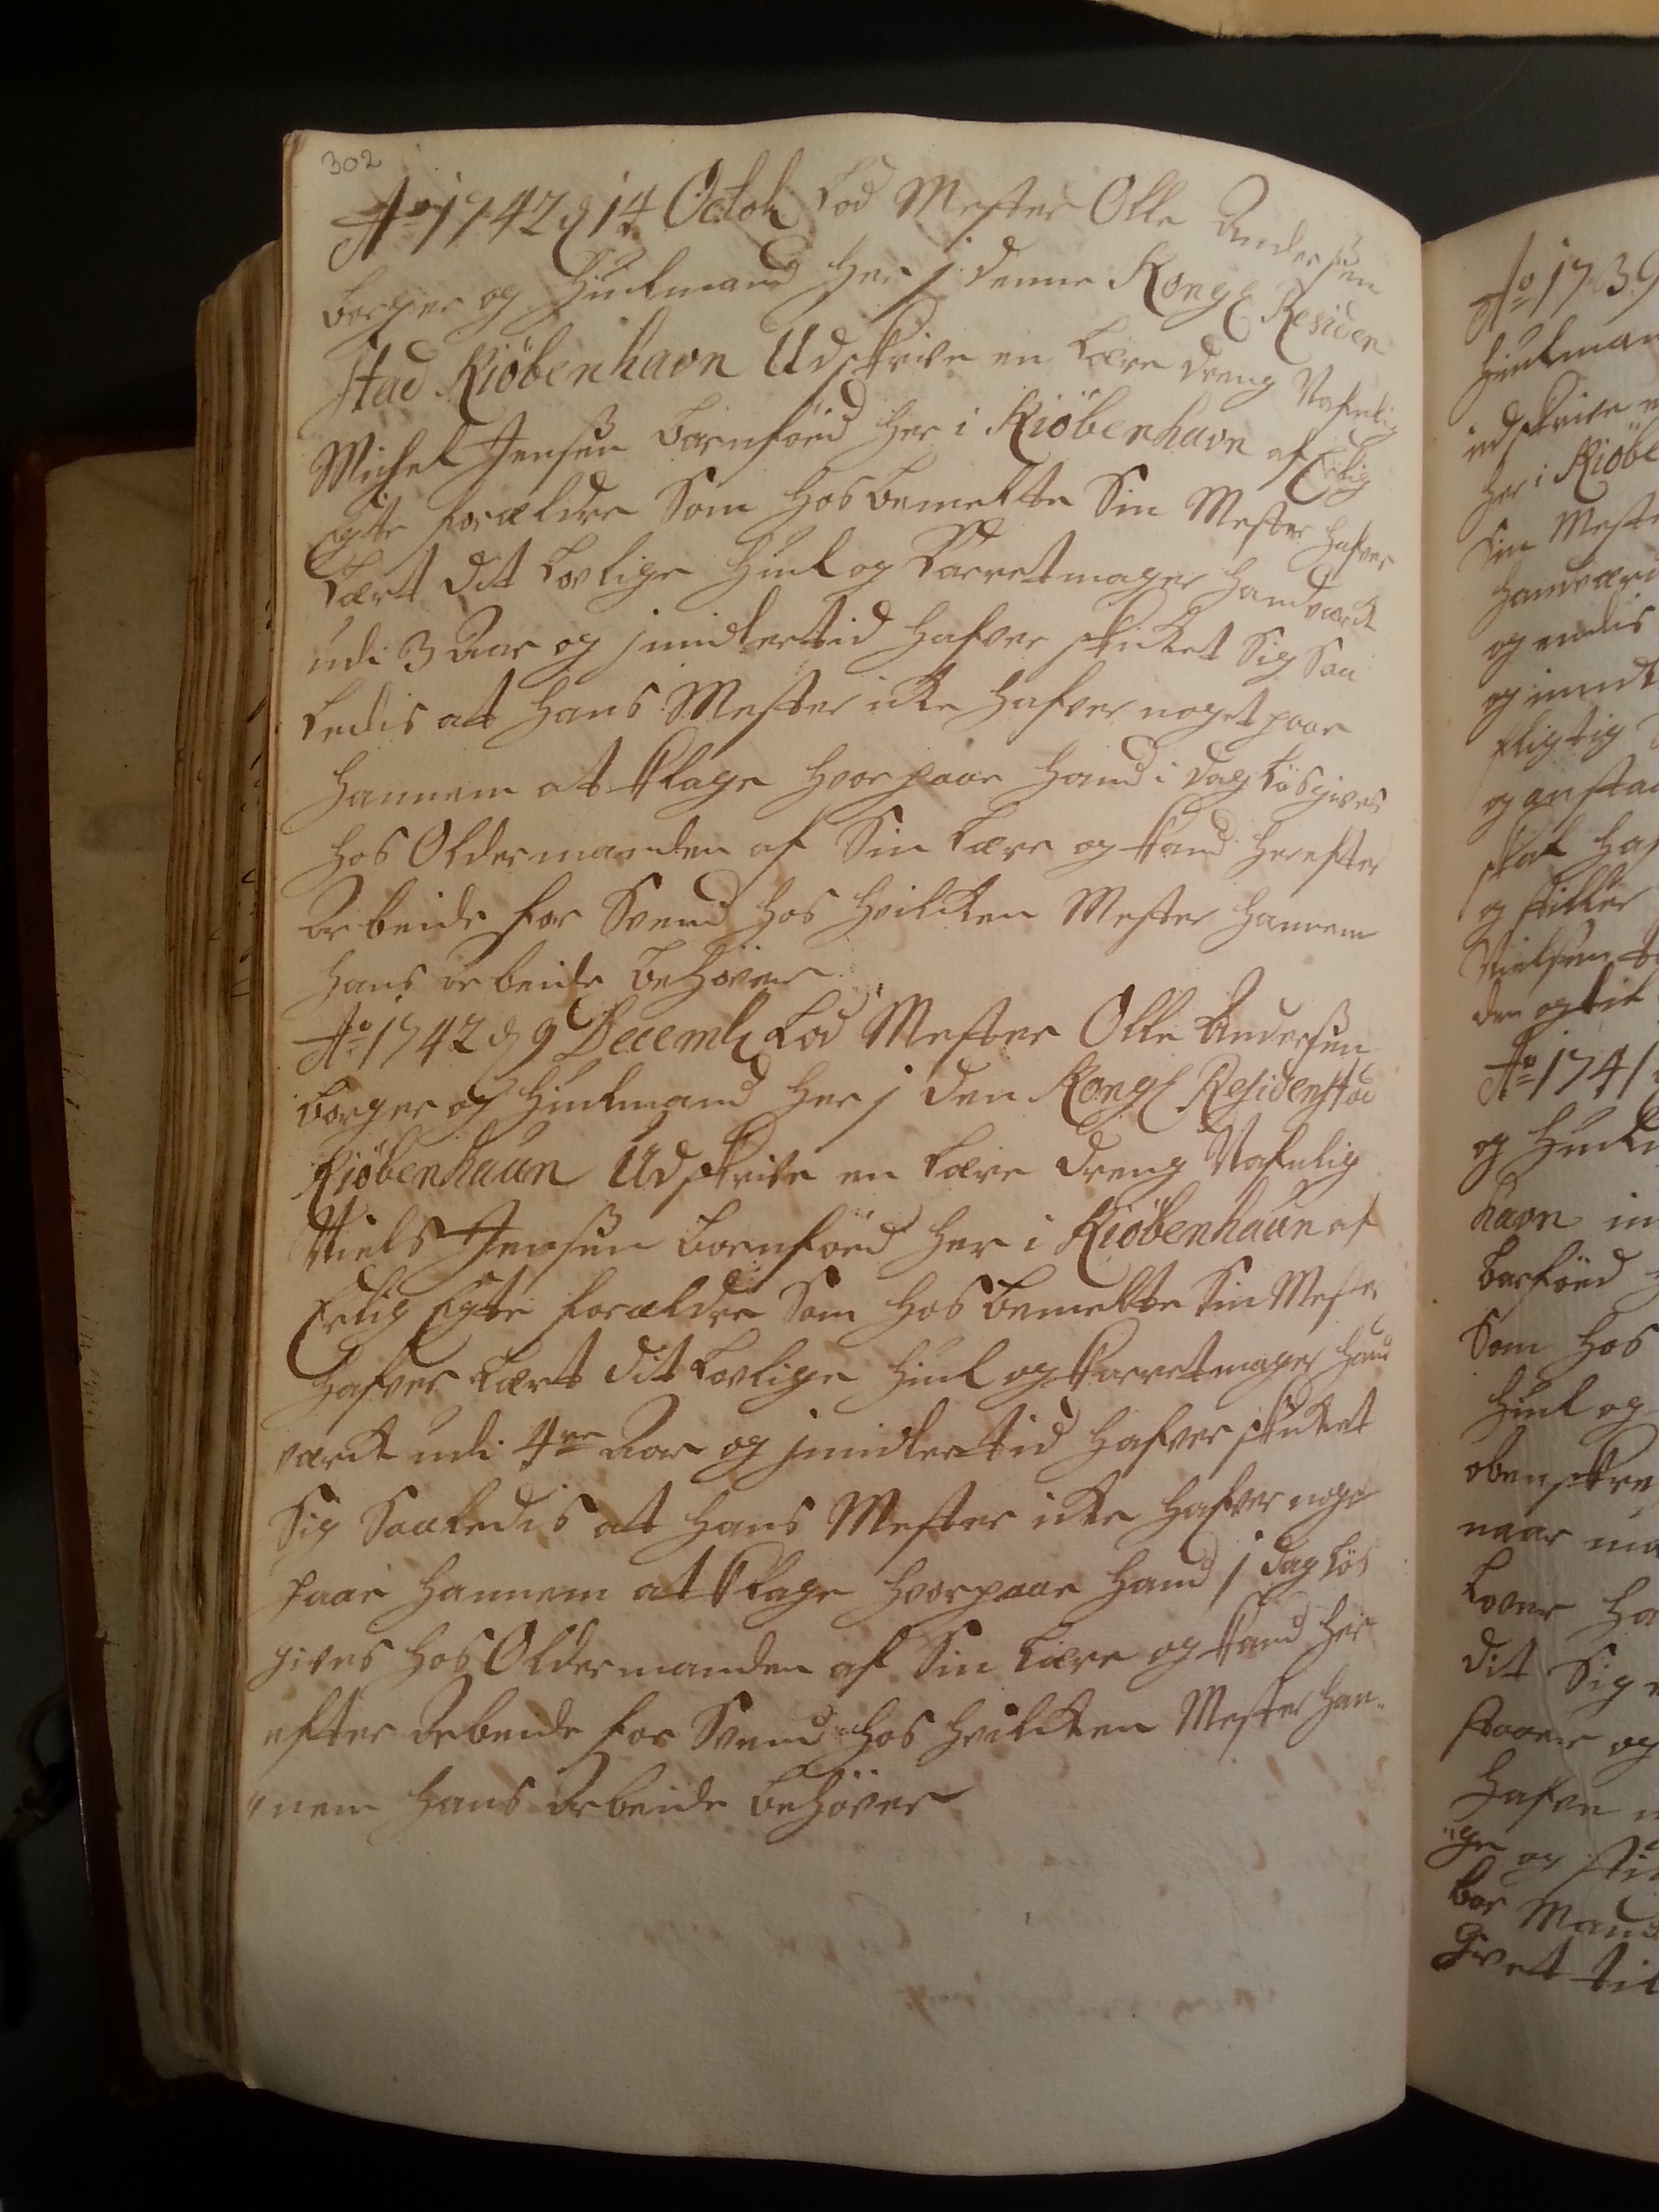 302
Ao 1742 d 14 Octob Lod Mester Olle Andersen
borger og Hiulmand her j denne Kongl Residen
stad Kiöbenhavn Udskrive en Lære dreng Nafnlig
Michel Jensen bornföed her i Kiöbenhavn af Erlig
Egte forældre Som hos bemelte Sin Mester hafver
Lært dit Lovlige Hiul og Karretmager Handværck
udi 3 Aar og jmidlertid hafver skicket Sig Saa
Ledis at hans Mester icke hafver noget paa
hannem at Klage hvor paa hand i dag Lösgives
hos Oldermanden af Sin Lære og kand herefter
Arbeide for Svend hos hvilcken Mester hannem
hans Arbeide behöver
Ao 1742 d 9 Decemb Lod Mester Olle Andersen
borger og Hiulmand her j den Kongl Residenstad
Kiöbenhaun Udskrive en Lære dreng Nafnlig
Niels Jensen bornföed her i Kiöbenhaun af
Erlig Egte forældre Som hos bemelte Sin Mester
hafver Lært dit Lovlige Hiul og Karretmager Hand
værck udi 4re Aar og jmidlertid hafver skicket
Sig Saaledis at hans Mester icke hafver noge
paa hannem at Klage hvorpaa hand j dag Lös
gives hos Oldermanden af Sin Lære og kand her
efter Arbeide for Svend hos hvilcken Mester han„
„nem hans Arbeide behöver
Ao 1739
Hiulman
indskrive
her i Kiöbe
Sin Meste
Handværc
og endis
og imid
fligtig
og anstaa
skal haf
og stiller
Nielsen
den og til
Ao 1741
og Hiul
havn in
barföed
Som hos
Hiul og
obenskre
naar
Lover ha
dit Sig
og
hafve
„ge og
bor Mand
givet til